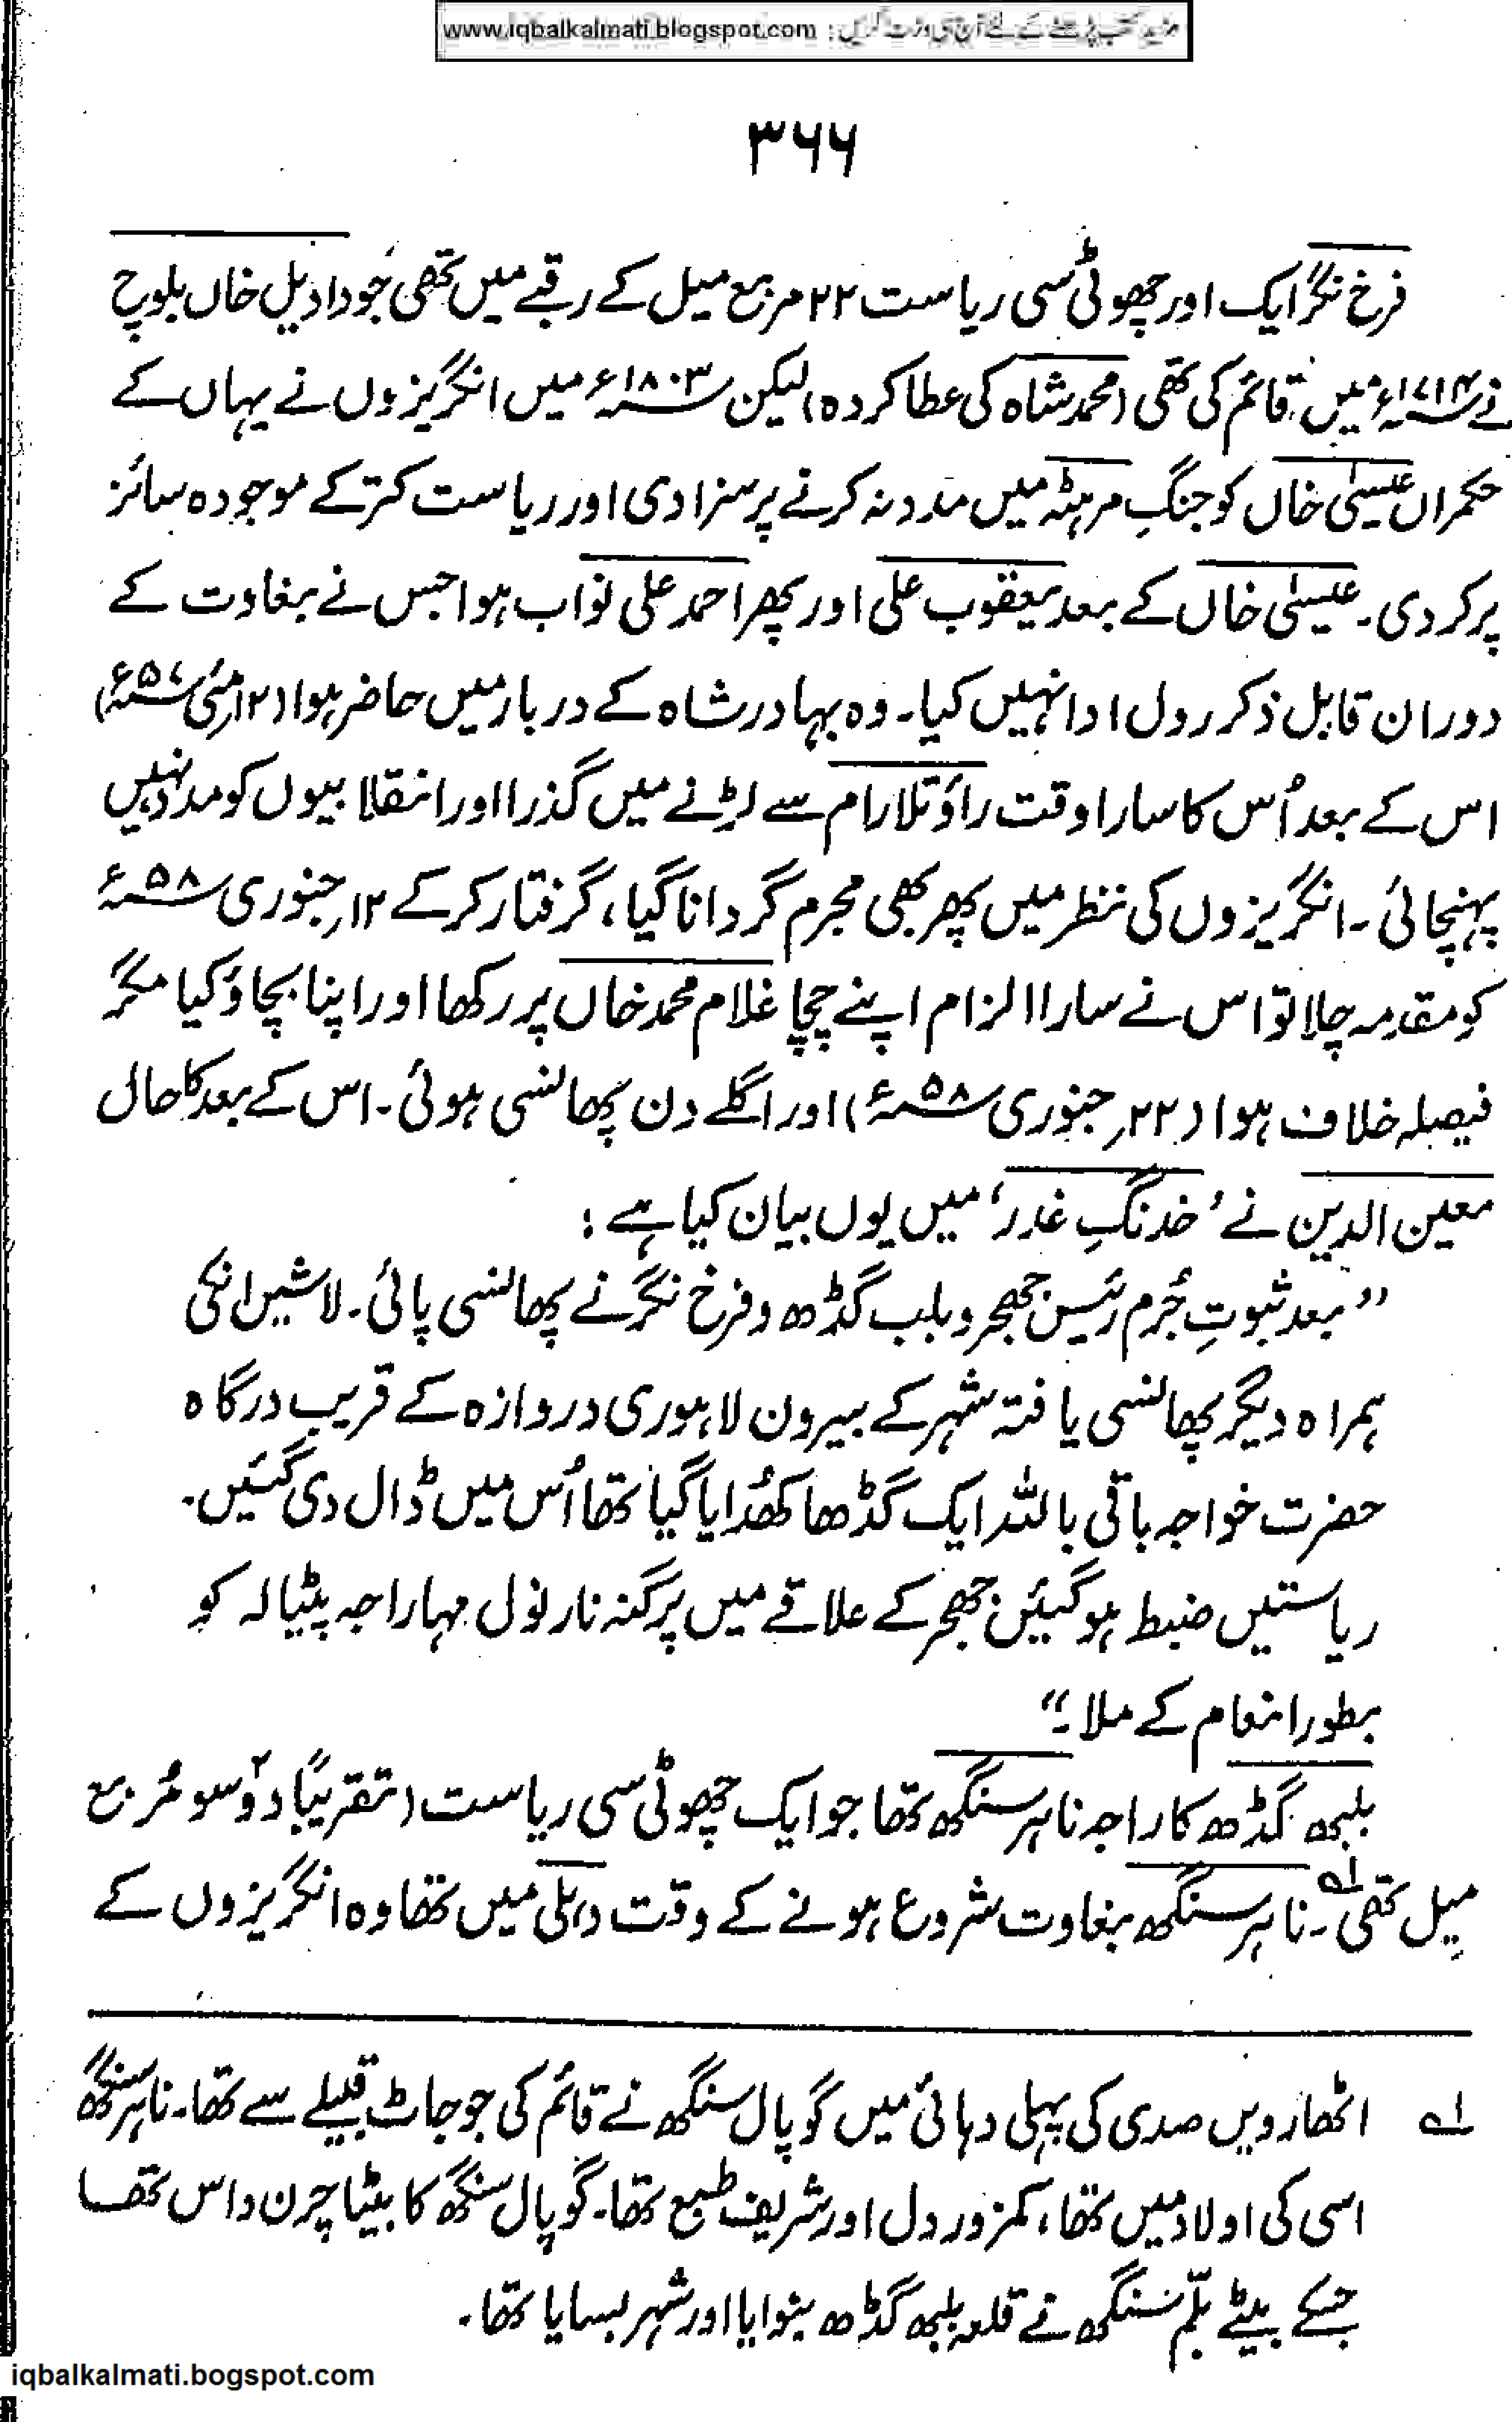 مزید کتب پڑھنے کے لئے آج ہی وزٹ کریں : www.iqbalkalmati.blogspot.com
۳۶۶
فرخ نگر ایک اور چھوٹی سی ریاست ۲۲ مربع میل کے رقبے میں تھی جو دادیل خاں بلوچ
نے ۱۷۱۴ء میں قائم کی تھی (محمد شاہ کی عطا کردہ) لیکن ۱۸۰۳ء میں انگریزوں نے یہاں کے
حکمراں عیسیٰ خاں کو جنگِ مرہٹہ میں مدد نہ کرنے پر سزا دی اور ریاست کتر کے موجودہ سائز
پر کر دی۔ عیسیٰ خاں کے بعد یعقوب علی اور پھر احمد علی نواب ہوا جس نے بغاوت کے
دوران قابل ذکر رول ادا نہیں کیا۔ وہ بہادر شاہ کے دربار میں حاضر ہوا (۱۲ مئی ۵۷ء)
اس کے بعد اُس کا سارا وقت راؤ تلا رام سے لڑنے میں گذرا اور انقلابیوں کو مدد نہیں
پہنچائی۔ انگریزوں کی نظر میں پھر بھی مجرم گردانا گیا، گرفتار کر کے ۱۲؍ جنوری ۵۸ء
کو مقدمہ چلا تو اس نے سارا الزام اپنے چچا غلام محمد خاں پر رکھا اور اپنا بچاؤ کیا مگر
فیصلہ خلاف ہوا (۲۲؍ جنوری ۵۸ء) اور اگلے دن پھانسی ہوئی۔ اس کے بعد کا حال
معین الدین نے ’خدنگِ غدر‘ میں یوں بیان کیا ہے :
”بعد ثبوتِ جُرم رئیس جھجر و بلب گڈھ و فرخ نگر نے پھانسی پائی۔ لاشیں انکی
ہمراہ دیگر پھانسی یافتہ شہر کے بیرون لاہوری دروازہ کے قریب درگاہ
حضرت خواجہ باقی باللہ ایک گڈھا کھُدایا گیا تھا اُس میں ڈال دی گئیں۔
ریاستیں ضبط ہو گئیں جھجر کے علاقے میں پرگنہ نارنول مہاراجہ پٹیالہ کو
بطور انعام کے ملا۔“
بلبھ گڈھ کا راجہ ناہر سنگھ تھا جو ایک چھوٹی سی ریاست (تقریباً دو۲ سو مُربع
میل تھی۔ ۱ے ناہر سنگھ بغاوت شروع ہونے کے وقت دہلی میں تھا وہ انگریزوں کے
۱ے اٹھارویں صدی کی پہلی دہائی میں گوپال سنگھ نے قائم کی جو جاٹ قبیلے سے تھا۔ ناہر سنگھ
اسی کی اولاد میں تھا، کمزور دل اور شریف طبع تھا۔ گوپال سنگھ کا بیٹا چرن داس تھا
جسکے بیٹے بلّم سنگھ نے قلعہ بلبھ گڈھ بنوایا اور شہر بسایا تھا۔
iqbalkalmati.bogspot.com